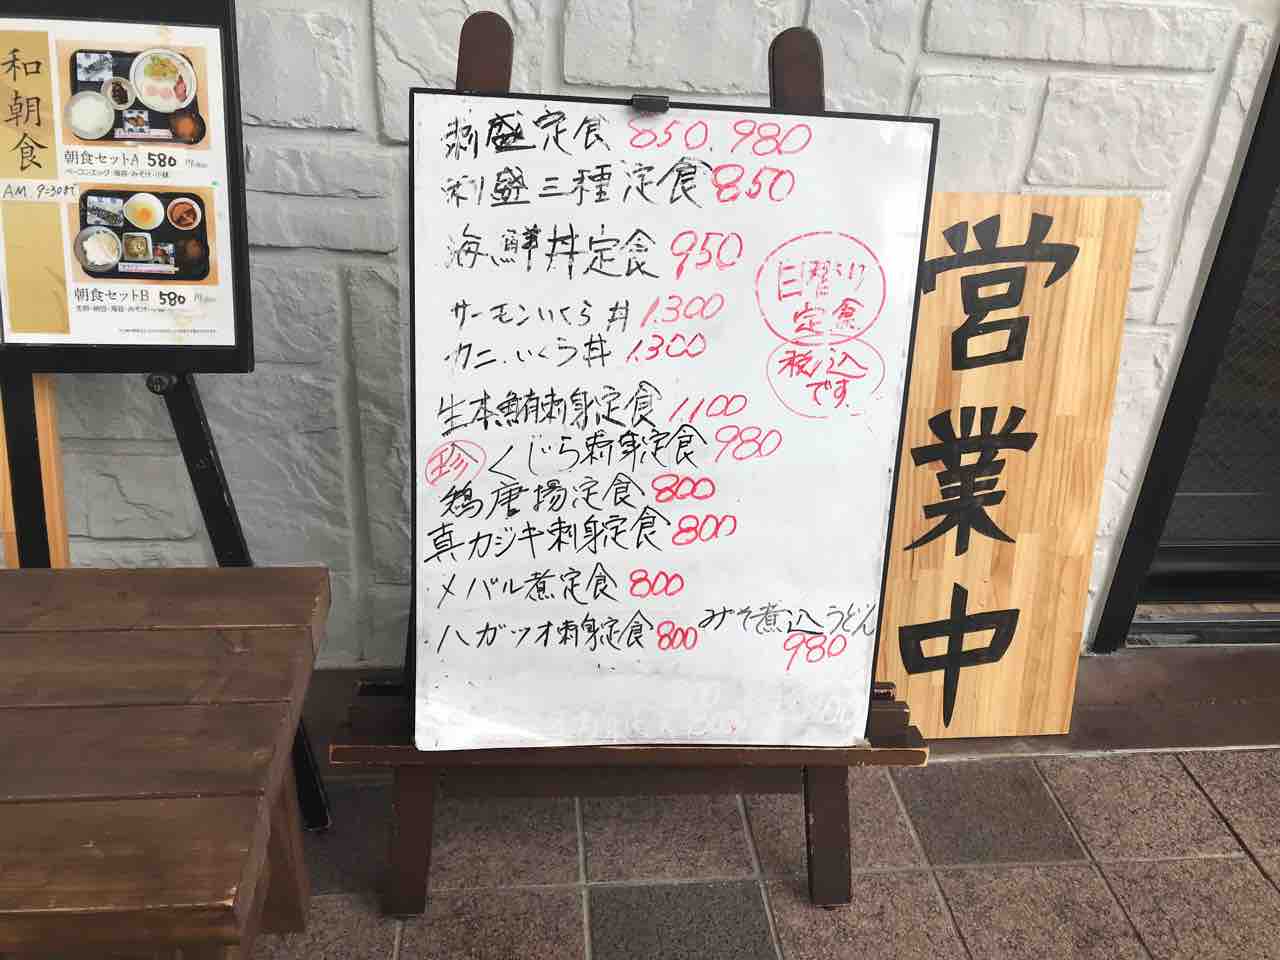 和朝食
AM 9:30まで
朝食セットA 580円
ベーコンエッグ・海苔・みそ汁・小鉢
朝食セットB 580円
刺盛定食 850.980
刺盛三種定食 850
海鮮丼定食 950
サーモンいくら丼 1.300
カニ.いくら丼 1.300
生本鮪刺身定食 1.100
珍 くじら刺身定食 980
鶏唐揚定食 800
真カジキ刺身定食 800
メバル煮定食 800
ハガツオ刺身定食 800
みそ煮込うどん
980
日替り
定食
税込
です
営業中